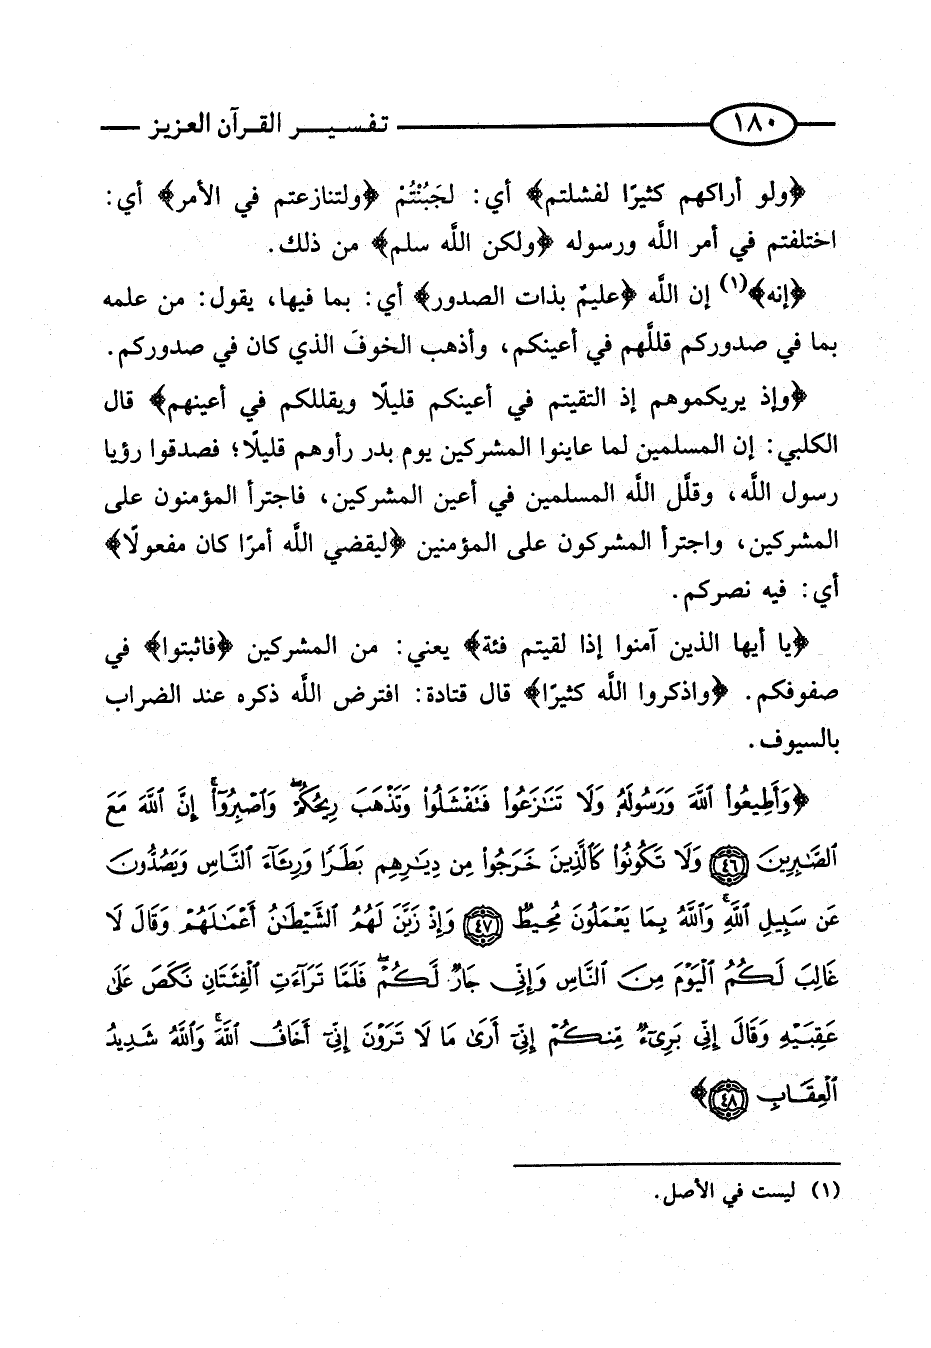 ١٨٠ تفسير القرآن العزيز
﴿ولو أراكهم كثيرًا لفشلتم﴾ أي: لجَبُنْتُمْ ﴿ولتنازعتم في الأمر﴾ أي:
اختلفتم في أمر اللَّه ورسوله ﴿ولكن اللَّه سلم﴾ من ذلك.
﴿إنه﴾(١) إن اللَّه ﴿عليمٌ بذات الصدور﴾ أي: بما فيها، يقول: من علمه
بما في صدوركم قللَّهم في أعينكم، وأذهب الخوفَ الذي كان في صدوركم.
﴿وإذ يريكموهم إذ التقيتم في أعينكم قليلًا ويقللكم في أعينهم﴾ قال
الكلبي: إن المسلمين لما عاينوا المشركين يوم بدر رأوهم قليلًا؛ فصدقوا رؤيا
رسول اللَّه، وقلَّل اللَّه المسلمين في أعين المشركين، فاجترأ المؤمنون على
المشركين، واجترأ المشركون على المؤمنين ﴿ليقضي اللَّه أمرًا كان مفعولًا﴾
أي: فيه نصركم.
﴿يا أيها الذين آمنوا إذا لقيتم فئة﴾ يعني: من المشركين ﴿فاثبتوا﴾ في
صفوفكم. ﴿واذكروا اللَّه كثيرًا﴾ قال قتادة: افترض اللَّه ذكره عند الضراب
بالسيوف.
﴿وَأَطِيعُوا۟ ٱللَّهَ وَرَسُولَهُۥ وَلَا تَنَـٰزَعُوا۟ فَتَفْشَلُوا۟ وَتَذْهَبَ رِيحُكُمْ ۖ وَٱصْبِرُوٓا۟ ۚ إِنَّ ٱللَّهَ مَعَ
ٱلصَّـٰبِرِينَ ٤٦ وَلَا تَكُونُوا۟ كَٱلَّذِينَ خَرَجُوا۟ مِن دِيَـٰرِهِم بَطَرًا وَرِئَآءَ ٱلنَّاسِ وَيَصُدُّونَ
عَن سَبِيلِ ٱللَّهِ ۚ وَٱللَّهُ بِمَا يَعْمَلُونَ مُحِيطٌ ٤٧ وَإِذْ زَيَّنَ لَهُمُ ٱلشَّيْطَـٰنُ أَعْمَـٰلَهُمْ وَقَالَ لَا
غَالِبَ لَكُمُ ٱلْيَوْمَ مِنَ ٱلنَّاسِ وَإِنِّى جَارٌ لَّكُمْ ۖ فَلَمَّا تَرَآءَتِ ٱلْفِئَتَانِ نَكَصَ عَلَىٰ
عَقِبَيْهِ وَقَالَ إِنِّى بَرِىٓءٌ مِّنكُمْ إِنِّىٓ أَرَىٰ مَا لَا تَرَوْنَ إِنِّىٓ أَخَافُ ٱللَّهَ ۚ وَٱللَّهُ شَدِيدُ
ٱلْعِقَابِ ٤٨﴾
(١) ليست في الأصل.